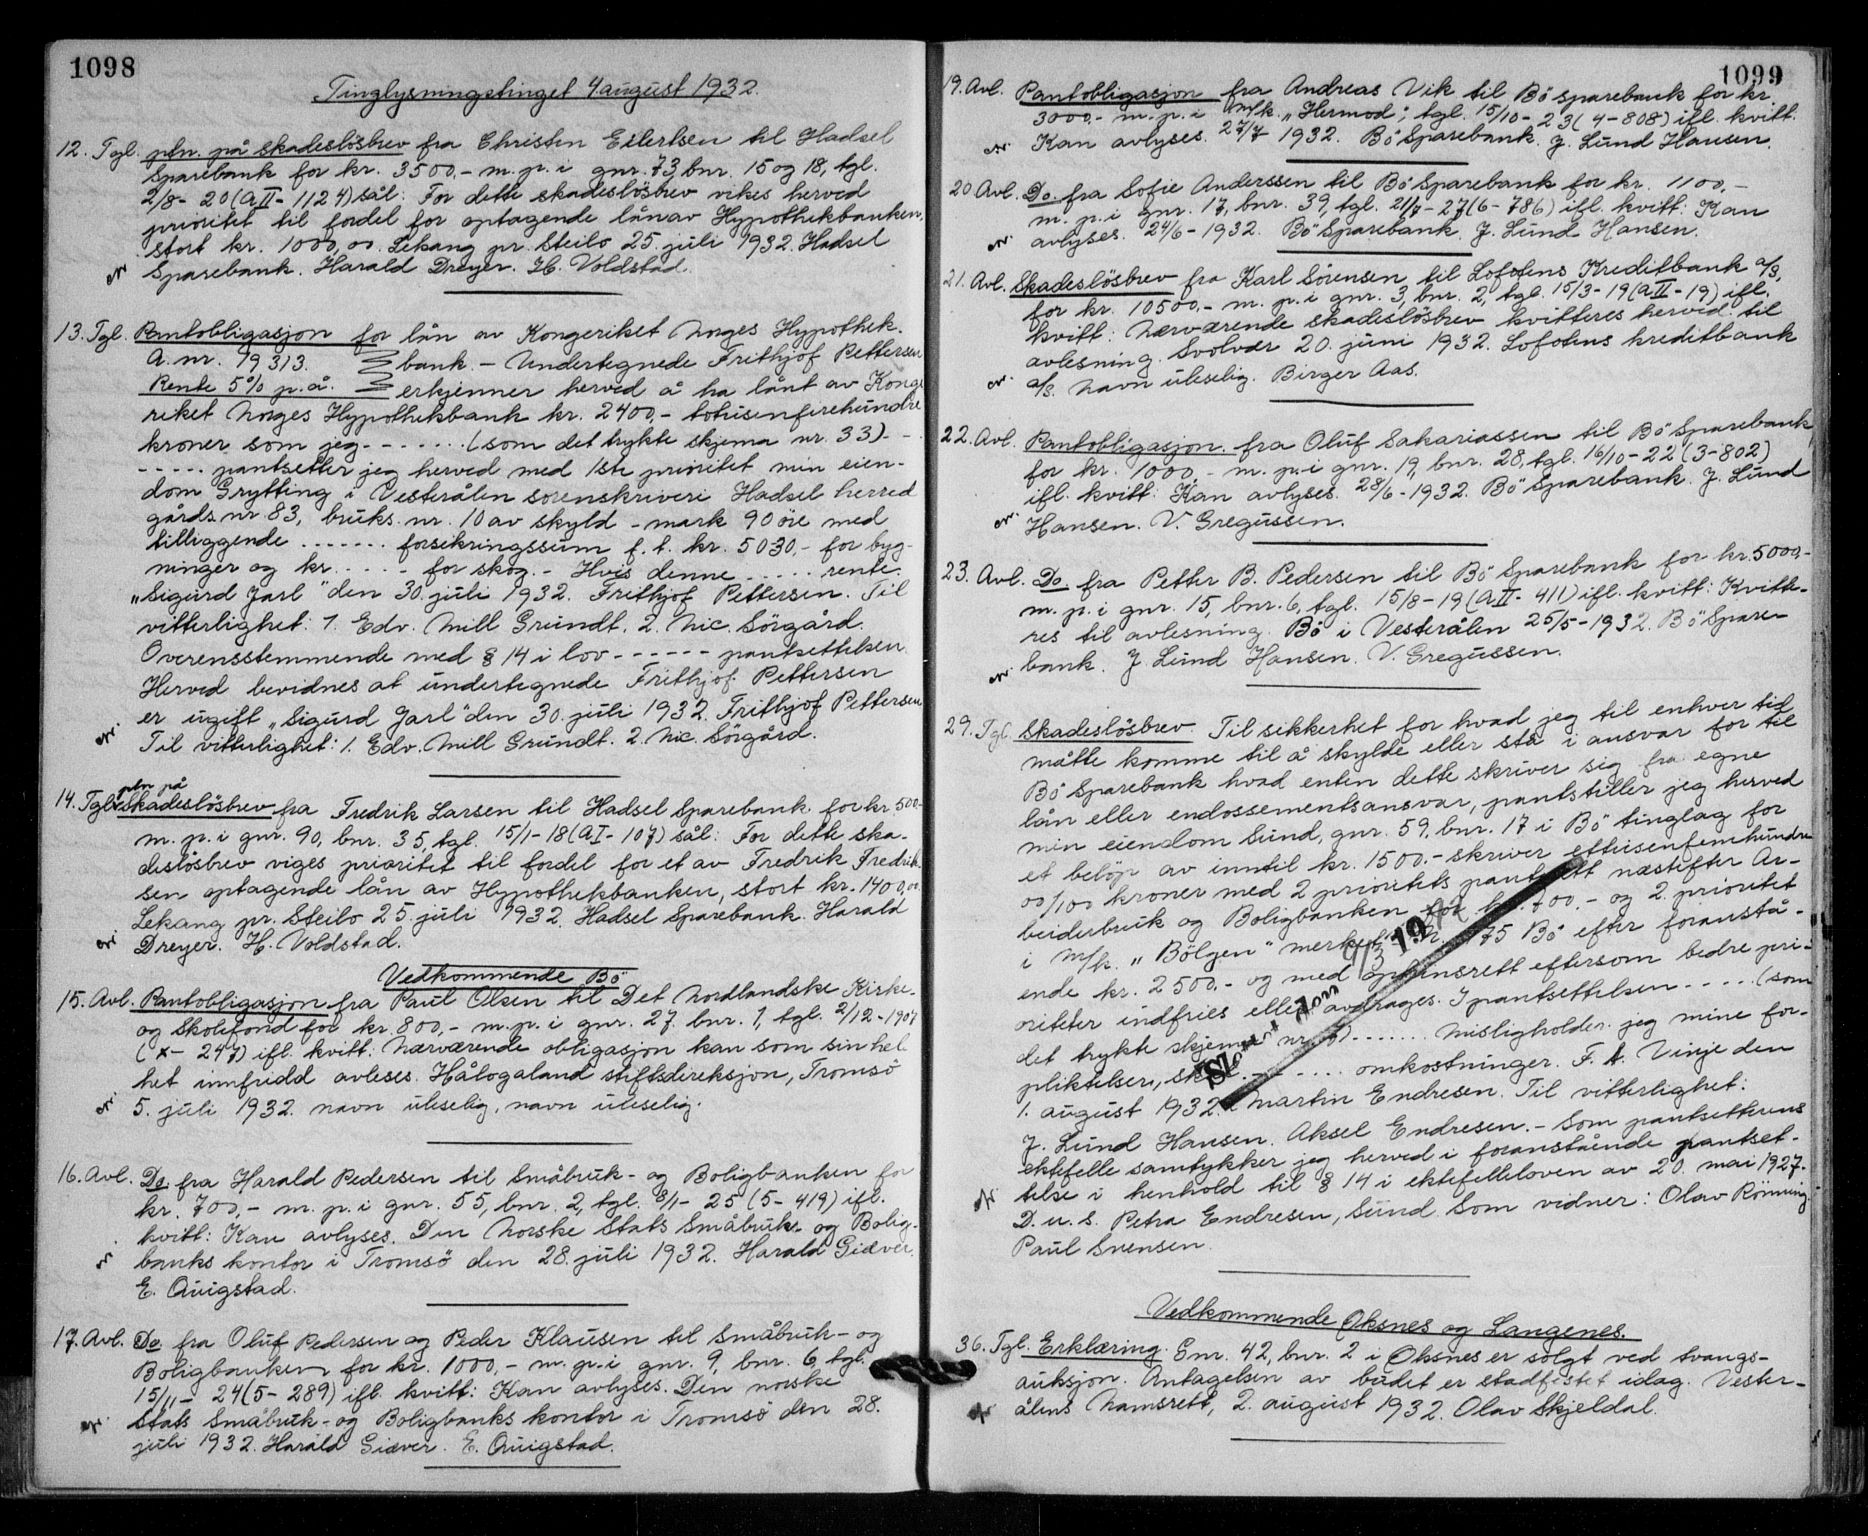 1098
Tinglysningstinget 4 august 1932.
12. Tgl. ptn. på skadeslösbrev fra Christen Eilertsen til Hadsel
Sparebank for kr. 3500,- m. p. i gnr. 73, bnr. 15 og 18, tgl.
2/8-20 (A II - 1124) sål: For dette skadeslösbrev vikes herved
prioritet til fordel for optagende lån av Hypothekbanken,
stort kr. 1000,00. Lekang pr. Steilo 25. juli 1932. Hadsel
Sparebank. Harald Dreyer. H. Voldstad.
13. Tgl. Pantobligasjon for lån av Kongeriket Norges Hypothek-
A. nr. 19313. bank. - Undertegnede Frithjof Pettersen
Rente 5% p. å. erkjenner herved å ha lånt av Konge
riket Norges Hypothekbank kr. 2400,- totusenfirehundre
kroner som jeg - - - - - - (som det trykte skjema nr. 33) - -
- - - - - pantsetter jeg herved med 1ste prioritet min eien-
dom Grytting i Vesterålen sorenskriveri Hadsel herred
gårds nr 83, bruks. nr. 10 av skyld - mark 90 öre med
tilliggende - - - - - - - forsikringssum f. t. kr. 5030,- for byg-
ninger og kr. - - - - - for skog. - Hvis denne - - - - - rente.
"Sigurd Jarl" den 30. juli 1932. Frithjof Pettersen. Til
vitterlighet: 1. Edv. Mill Grundt. 2. Nic. Sörgård.
Overensstemmende med § 14 i lov - - - - - - pantsettelsen.
Herved bevidnes at undertegnede Frithjof Pettersen
er ugift "Sigurd Jarl" den 30. juli 1932. Frithjof Pettersen
Til vitterlighet: 1. Edv. Mill Grundt. 2. Nic. Sörgård.
ptn på
14. Tgl. Skadeslösbrev fra Fredrik Larsen til Hadsel Sparebank for kr. 500-
m. p. i gnr. 90, bnr. 35, tgl. 15/1-18 (A I - 107) sål: For dette ska-
deslösbrev viges prioritet til fordel for et av Fredrik Fredrik
sen optagende lån av Hypothekbanken, stort kr. 1400,00
Lekang pr. Steilo 25. juli 1932. Hadsel Sparebank. Harald
Dreyer. H. Voldstad.
Vedkommende Bö
15. Avl. Pantobligasjon fra Paul Olsen til Det Nordlandske Kirke-
og Skolefond for kr. 800,- m. p. i gnr. 27. bnr. 1, tgl. 2/12-1907
(X - 247) ifl. kvitt: Nærværende obligasjon kan som sin hel
het innfridd avleses. Hålogaland stiftsdireksjon, Tromsö
5. juli 1932. navn uleselig, navn uleselig.
16. Avl. Do. fra Harald Pedersen til Småbruk- og Boligbanken for
kr. 700,- m. p. i gnr. 55, bnr. 2, tgl. 8/1-25 (5-419) ifl.
kvitt: Kan avlyses. Den Norske Stats Småbruk- og Bolig-
banks kontor i Tromsö den 28. juli 1932. Harald Giæver.
E. Qvigstad.
17. Avl. Do fra Oluf Pedersen og Peder Klausen til Småbruk- og
Boligbanken for kr. 1000,- m. p. i gnr. 9, bnr. 6, tgl.
15/11-24 (5-289) ifl. kvitt: Kan avlyses. Den norske
Stats Småbruk- og Boligbanks kontor i Tromsö den 28.
juli 1932. Harald Giæver. E. Qvigstad.
1099
19. Avl. Pantobligasjon fra Andreas Vik til Bö sparebank for kr.
3000,- m. p. i m/k. "Hermod", tgl. 15/10-23 (4-808) ifl. kvitt.
Kan avlyses. 27/7-1932. Bö Sparebank. J. Lund Hansen.
20 Avl. Do. fra Sofie Anderssen til Bö Sparebank for kr. 1100,-
m. p. i gnr. 17, bnr. 39, tgl. 21/7-27 (6-786) ifl. kvitt: Kan
avlyses. 24/6-1932. Bö Sparebank. J. Lund Hansen.
21. Avl. Skadeslösbrev fra Karl Sörensen til Lofotens Kreditbank a/s,
for kr. 10500,- m. p. i gnr. 3, bnr. 2, tgl. 15/3-19 (A II - 19) ifl.
kvitt: Nærværende skadeslösbrev kvitteres herved til
avlesning. Svolvær 20. juni 1932. Lofotens kreditbank
a/s. navn uleselig. Birger Aas.
22. Avl. Pantobligasjon fra Oluf Sakariassen til Bö Sparebank
for kr. 1000,- m. p. i gnr. 19, bnr. 28, tgl. 16/10-22 (3-802)
ifl. kvitt: Kan avlyses. 28/6-1932. Bö Sparebank. J. Lund
Hansen. V. Gregussen.
23. Avl. Do. fra Petter B. Pedersen til Bö Sparebank for kr. 5000,-
m. p. i gnr. 15, bnr. 6, tgl. 15/8-19 (A II - 411) ifl. kvitt: Kvitte-
res til avlesning. Bö i Vesterålen 25/5-1932. Bö Spare-
bank. J. Lund Hansen. V. Gregussen.
29. Tgl. Skadeslösbrev. Til sikkerhet for hvad jeg til enhver tid
måtte komme til å skylde eller stå i ansvar for til
Bö Sparebank hvad enten dette skriver sig fra egne
lån eller endossementsansvar, pantstiller jeg herved
min eiendom Sund, gnr. 59, bnr. 17 i Bö tinglag for
et belöp av inntil kr. 1500.- skriver ettusenfemhundre
00/100 kroner med 2 prioritets pantrett næstefter Ar-
beiderbruk og Boligbanken for kr. 700.- og 2. prioritet
i m/k. "Bölgen" merket N. 175 Bö efter foranstå-
ende kr. 2500.- og med oprykningsrett eftersom bedre pri-
oriteter indfries eller avdrages. I pantsettelsen - - - - - (som
det trykte skjema nr. 6) - - - - - - - misligholder jeg mine for-
pliktelser, skal - - - - - - - omkostninger. F. t. Vinje den
1. august 1932. Martin Endresen. Til vitterlighet:
J. Lund Hansen. Aksel Endresen. - Som pantsetterens
ektefelle samtykker jeg herved i foranstående pantset-
telse i henhold til § 14 i ektefelleloven av 20. mai 1927.
D. u. s. Petra Endresen, Sund. Som vidner: Olav Rönning
Paul Svensen.
Vedkommende Öksnes og Langenes.
36. Tgl. Erklæring. Gnr. 42, bnr. 2 i Öksnes er solgt ved tvangs-
auksjon. Antagelsen av budet er stadfestet idag. Vester-
ålens Namsrett, 2. august 1932. Olav Skjeldal.